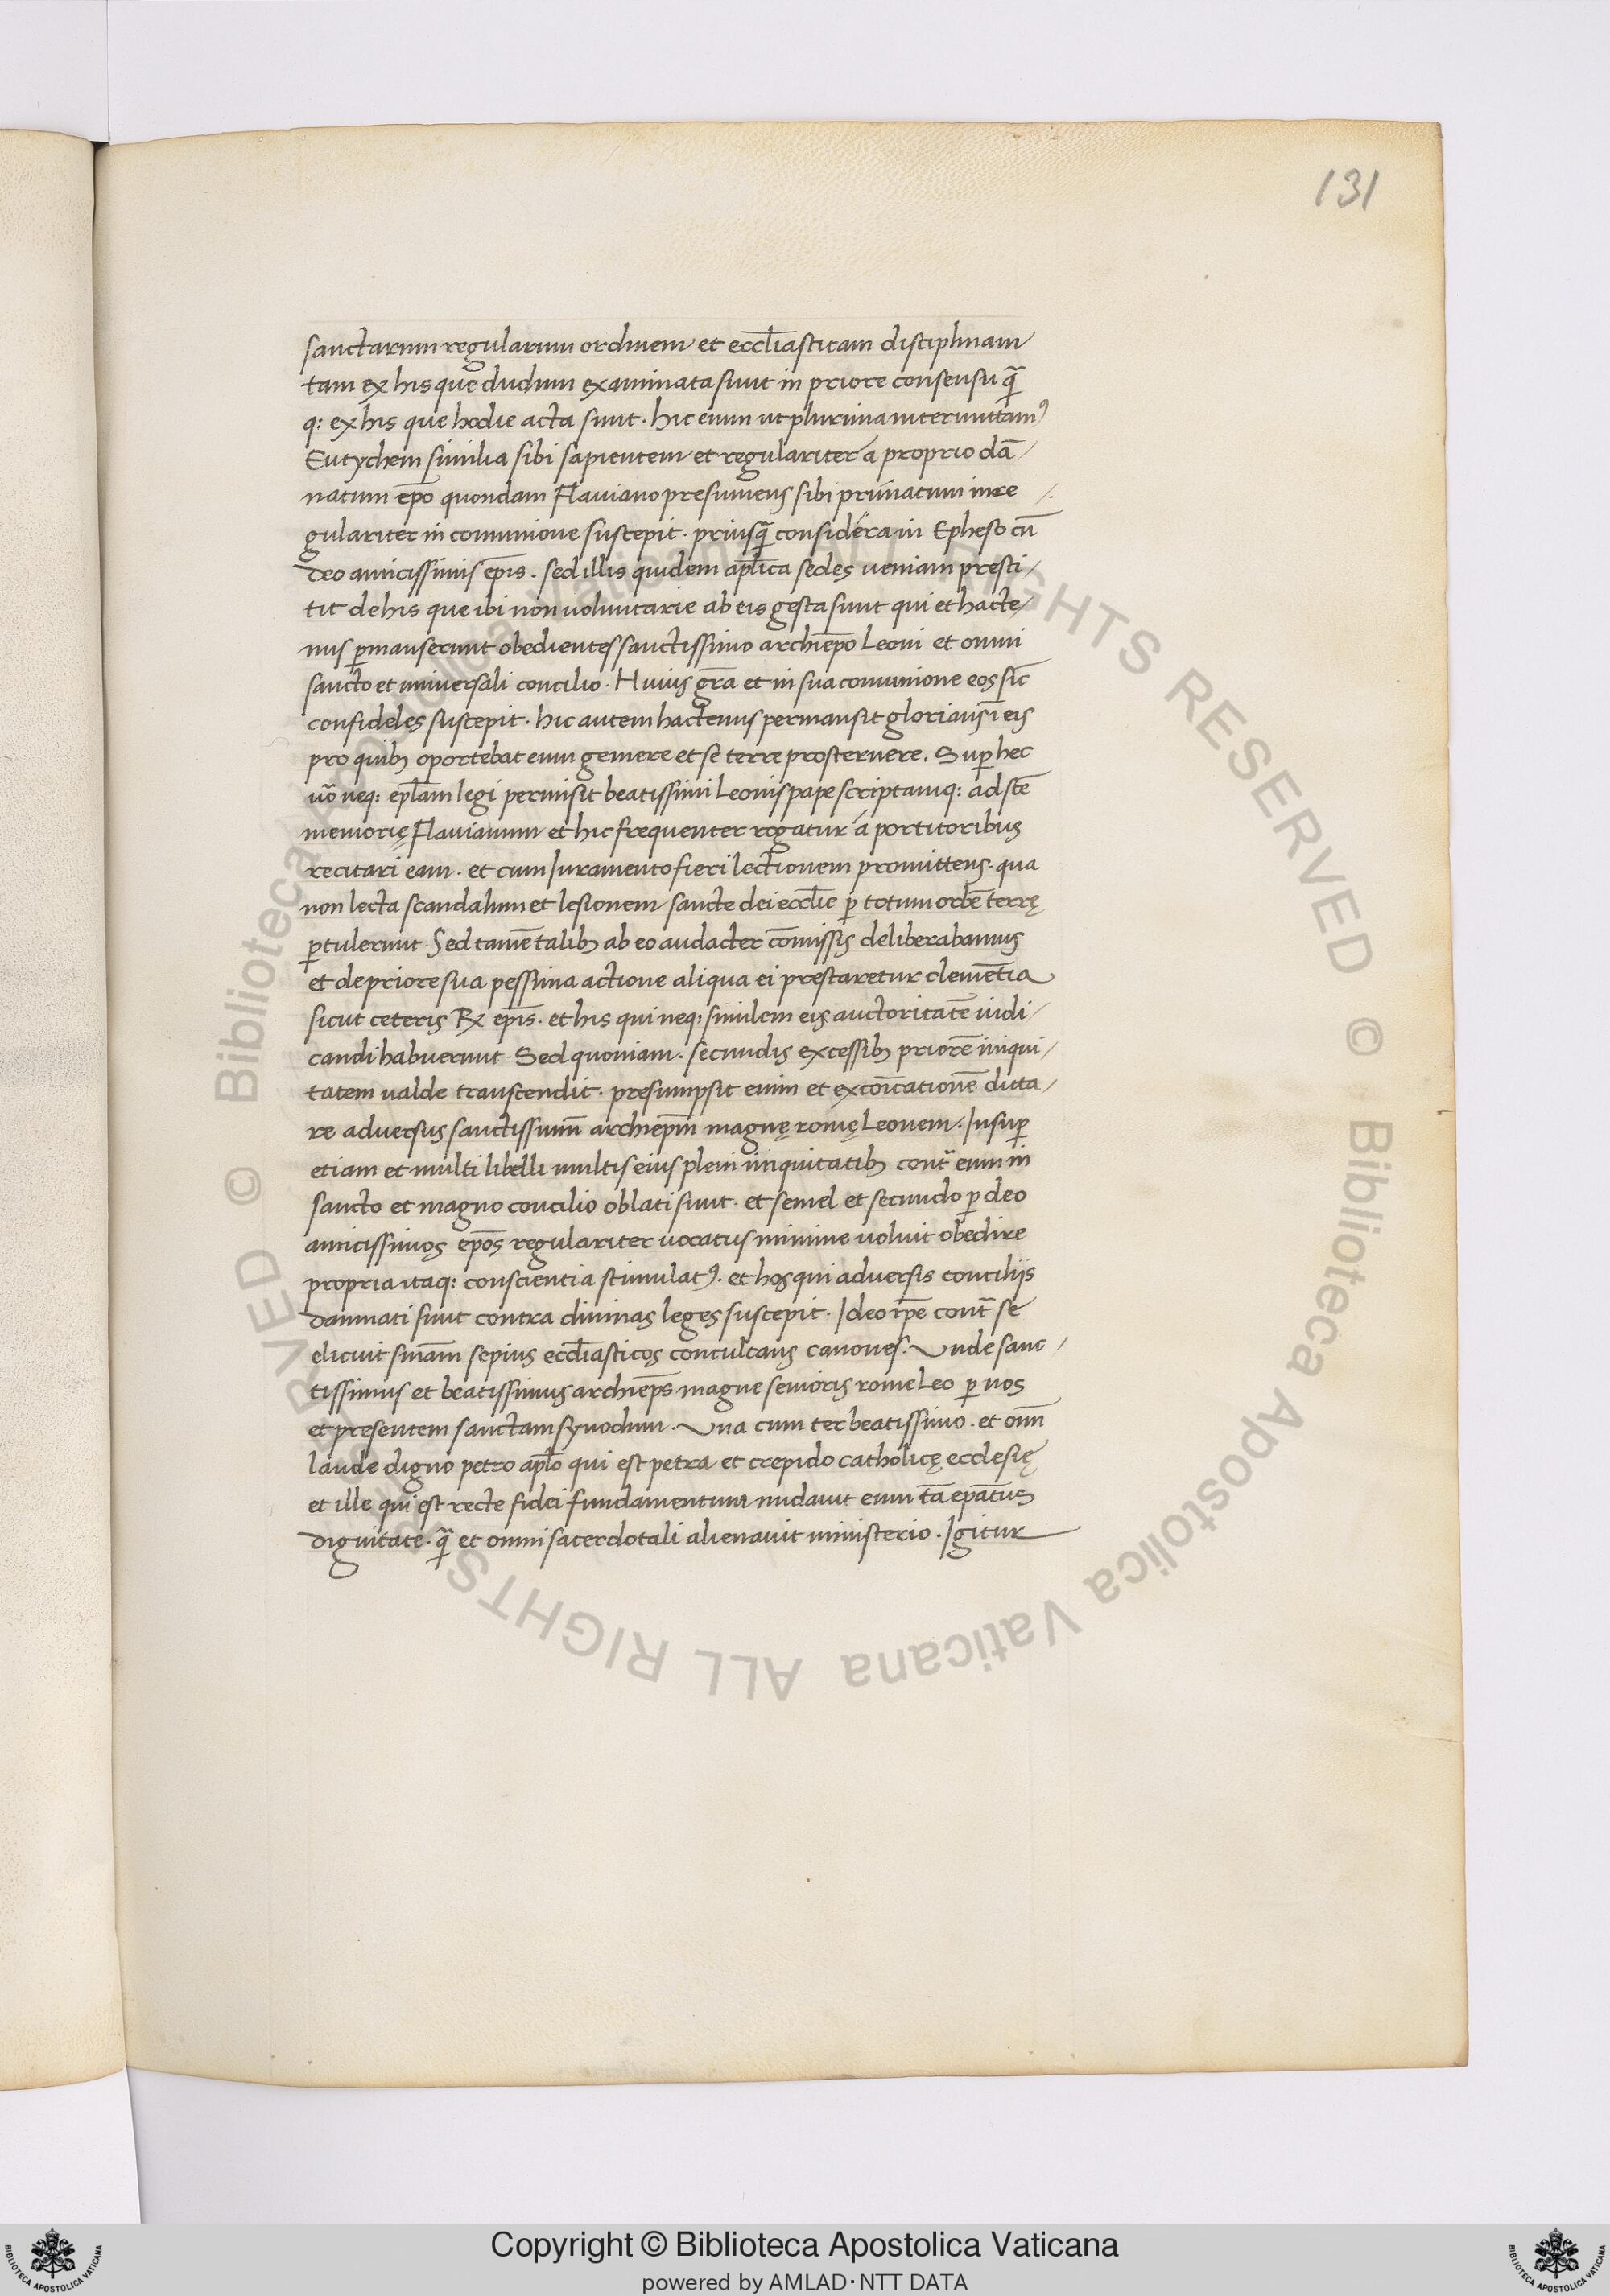 131
sanctarum regularum ordinem et eccl̄iasticam disciplinam
tam ex his que dudum examinata sunt in priore consensu q̄
q: ex his que hodie acta sunt. hic enim ut plurima intermittamꝰ
Eutychem similia sibi sapientem et regulariter á proprio dā/
natum ep̄o quondam Flauiano presumens sibi primatum inre/.
gulariter in comunione suscepit. priusq̄ consideraın Epheso cū
deo amicissimis ep̄is. sed illis quidem apl̄ica sedes ueniam presti/
tit de his que ibi non uoluntarie ab eis gesta sunt qui et hacte/
nus ꝑmanserunt obedientes sanctissimo archiep̄o Leoni et omni
sancto et uniuersali concilio. Huius gr̄a et in sua comunione eos sic̄
confideles suscepit. hic autem hactenus permansit glorians ī eis
pro quibꝫ oportebat eum gemere et se terre prosternere. Suꝑ hec
uō neq: epl̄am legi permisit beatissimi Leonis pape scriptamq: ad stē
memorię Flauianum et hic frequenter rogatur á portitoribus
recitari eam. et cum Iuramento fieri lectionem promittens. qua
non lecta scandalum et lesionem sancte dei eccl̄ie ꝑ totum orbē terrę
ꝑtulerunt. Sed tamē talibꝫ ab eo audacter cōmissis deliberabamus
et de priore sua pessima actione aliqua ei prestaretur clemētia
sicut ceteris Rx ep̄is. et his qui neq: similem eis auctoritatē iudi/
candi habuerunt. Sed quoniam. secundis excessibꝫ priorē iniqui/
tatem ualde transcendit. presumpsit enim et excōicationē dicta/
re aduersus sanctissimū archiep̄m magnę romę Leonem. Insuꝑ
etiam et multi libelli multis eius pleni iniquitatibꝫ cont̄ eum in
sancto et magno concilio oblati sunt. et semel et secundo ꝑ deo
amicissimos ep̄os regulariter uocatus minime uoluit obedire
propria itaq: conscientia stimulatꝰ. et hos qui aduersis conciliis
damnati sunt contra diuinas leges suscepit. Ideo ip̄e cont̄ se
elicuit sn̄iam sepius eccl̄iasticos conculcans canones. Unde sanc/
tissimus et beatissimus archiep̄s magne senioris rome Leo ꝑ nos
et presentem sanctam synodum. Una cum ter beatissimo. et omī
laude digno petro apl̄o qui est petra et crepido catholicę ecclesię
et ille qui est recte fidei fundamentum nudauit eum tā ep̄atus
dignitate. q̄ et omni sacerdotali alienauit ministerio. Igitur
© Biblioteca Apostolica Vaticana ALL RIGHTS RESERVED © Biblioteca Apostolica Vaticana ALL RIGHTS RESERVED
Copyright © Biblioteca Apostolica Vaticana
powered by AMLAD·NTT DATA
BIBLIOTECA APOSTOLICA VATICANA
BIBLIOTECA APOSTOLICA VATICANA